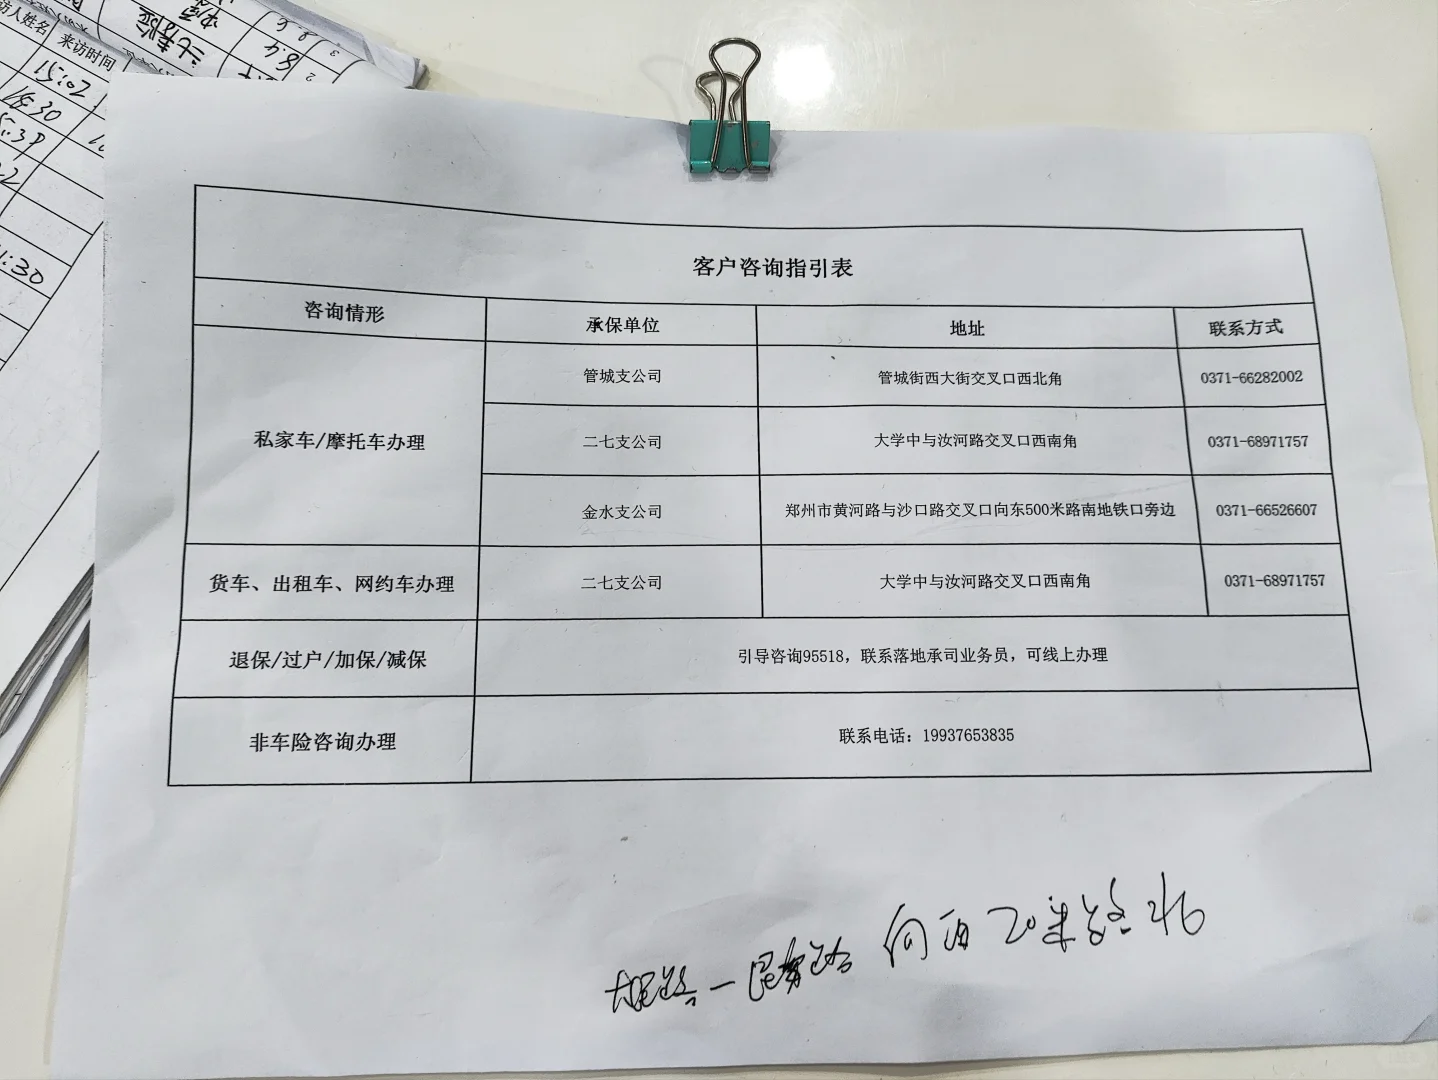 访人姓名
来访时间
15:02
15:30
11:30
8.4
8.6
客户咨询指引表
咨询情形 承保单位 地址 联系方式
私家车/摩托车办理
管城支公司 管城街西大街交叉口西北角 0371-66282002
二七支公司 大学中与汝河路交叉口西南角 0371-68971757
金水支公司 郑州市黄河路与沙口路交叉口向东500米路南地铁口旁边 0371-66526607
货车、出租车、网约车办理 二七支公司 大学中与汝河路交叉口西南角 0371-68971757
退保/过户/加保/减保 引导咨询95518，联系落地承司业务员，可线上办理
非车险咨询办理 联系电话：19937653835
向西20米路北